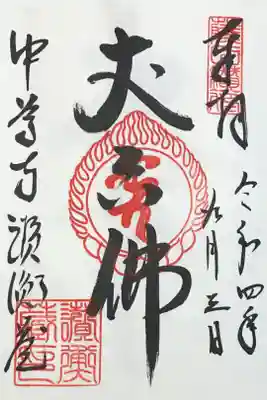 奉拝
令和四年
九月三日
丈六佛
中尊寺 讃衡蔵
讃衡
蔵印